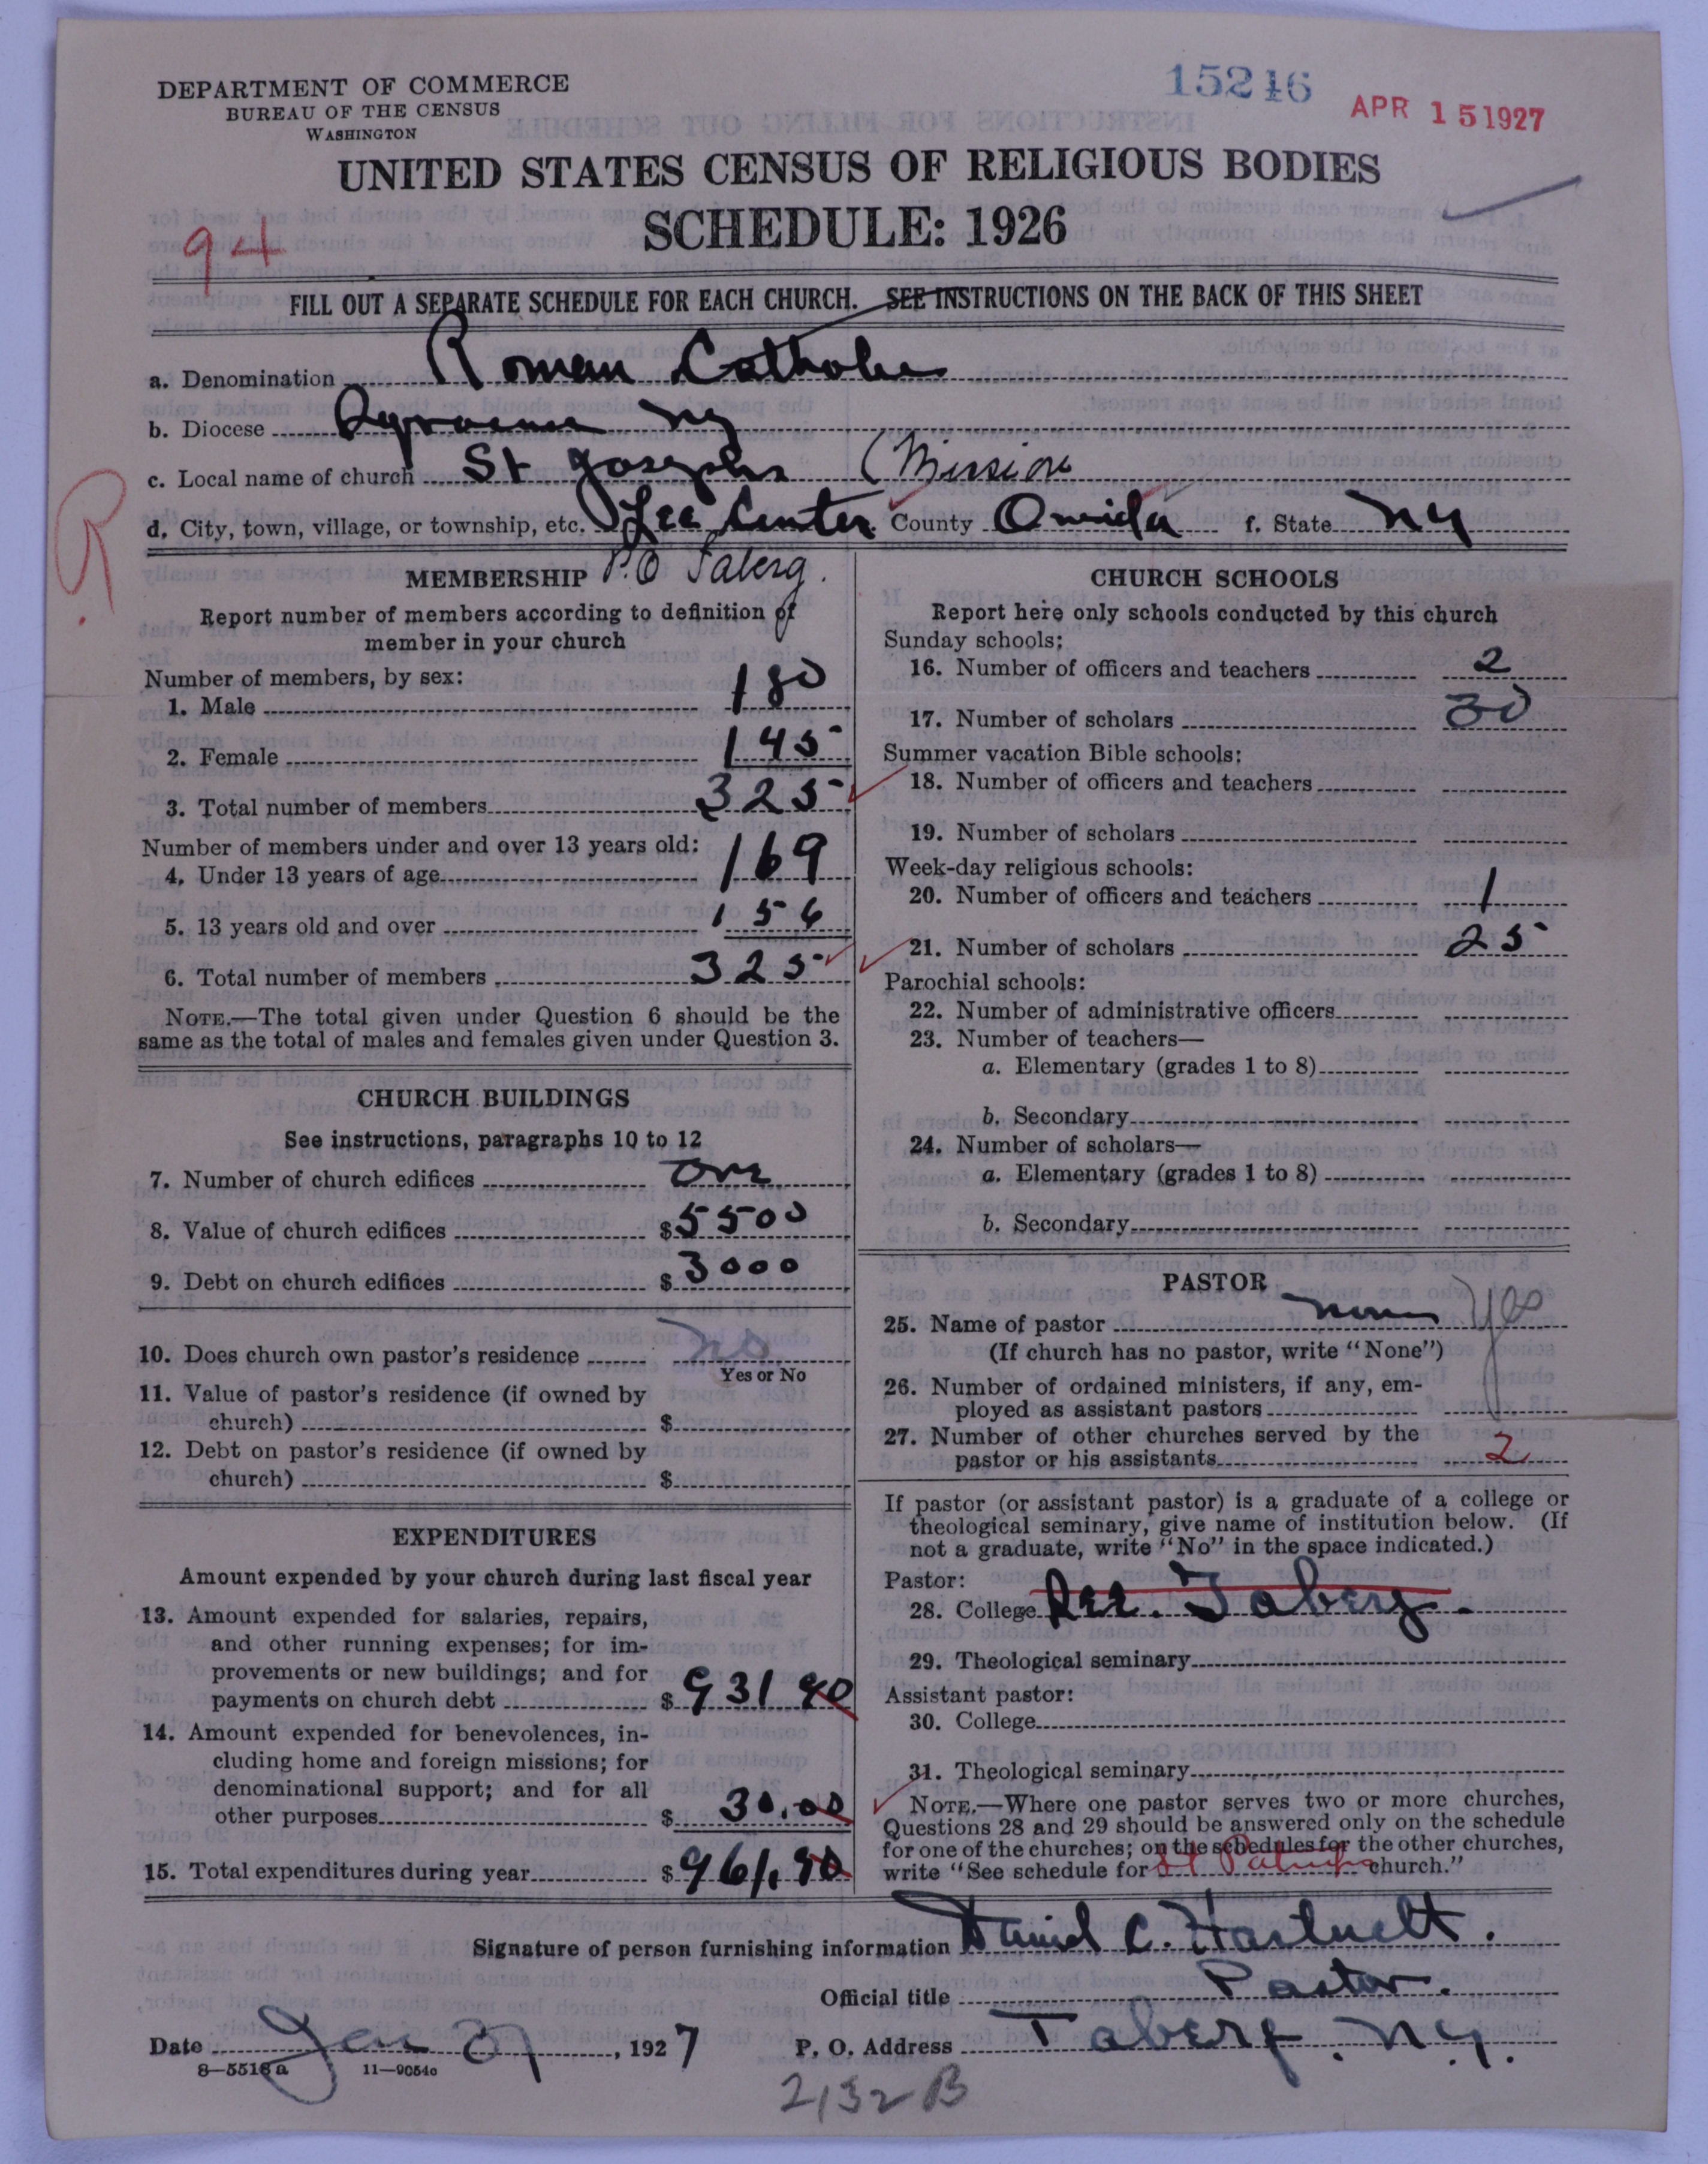 DEPARTMENT OF COMMERCE
BUREAU OF THE CENSUS
WASHINGTON
15216
APR 15 1927
UNITED STATES CENSUS OF RELIGIOUS BODIES
SCHEDULE: 1926
94
FILL OUT A SEPARATE SCHEDULE FOR EACH CHURCH. SEE INSTRUCTIONS ON THE BACK OF THIS SHEET
a. Denomination Roman Catholic
b. Diocese Syracuse NY
c. Local name of church St Josephs (Mission
d. City, town, village, or township, etc. Lee Center County Oneida f. State NY
R
MEMBERSHIP P.O Taberg.
Report number of members according to definition of
member in your church
Number of members, by sex:
1. Male 180
2. Female 145
3. Total number of members 325
Number of members under and over 13 years old:
4. Under 13 years of age 169
5. 13 years old and over 156
6. Total number of members 325
NOTE.—The total given under Question 6 should be the
same as the total of males and females given under Question 3.
CHURCH BUILDINGS
See instructions, paragraphs 10 to 12
7. Number of church edifices One
8. Value of church edifices $5500
9. Debt on church edifices $3000
10. Does church own pastor's residence No
Yes or No
11. Value of pastor's residence (if owned by
church) $
12. Debt on pastor's residence (if owned by
church) $
EXPENDITURES
Amount expended by your church during last fiscal year
13. Amount expended for salaries, repairs,
and other running expenses; for im-
provements or new buildings; and for
payments on church debt $931 90
14. Amount expended for benevolences, in-
cluding home and foreign missions; for
denominational support; and for all
other purposes $30.00
15. Total expenditures during year $961.90
CHURCH SCHOOLS
Report here only schools conducted by this church
Sunday schools:
16. Number of officers and teachers 2
17. Number of scholars 30
Summer vacation Bible schools:
18. Number of officers and teachers
19. Number of scholars
Week-day religious schools:
20. Number of officers and teachers 1
21. Number of scholars 25
Parochial schools:
22. Number of administrative officers
23. Number of teachers—
a. Elementary (grades 1 to 8)
b. Secondary
24. Number of scholars—
a. Elementary (grades 1 to 8)
b. Secondary
PASTOR
25. Name of pastor None Yes
(If church has no pastor, write "None")
26. Number of ordained ministers, if any, em-
ployed as assistant pastors
27. Number of other churches served by the
pastor or his assistants 2
If pastor (or assistant pastor) is a graduate of a college or
theological seminary, give name of institution below. (If
not a graduate, write "No" in the space indicated.)
Pastor:
28. College See. Taberg.
29. Theological seminary
Assistant pastor:
30. College
31. Theological seminary
NOTE.—Where one pastor serves two or more churches,
Questions 28 and 29 should be answered only on the schedule
for one of the churches; on the schedules for the other churches,
write "See schedule for St Patricks church."
Signature of person furnishing information Daniel C. Hartnett.
Official title Pastor.
Date Jan 27, 1927 P. O. Address Taberg. N.Y.
8—5518a 11—9054c
2132 B